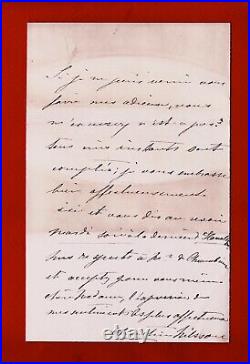 Si je ne puis venir vous
faire mes adieux, vous
m'excuserez n'est-ce pas?
tous mes instants sont
comptés, je vous embrasse
bien affectueusement
ici et vous dis au revoir
mardi soirée
et acceptez pour vous même
chère Madame, l'expression de
mes sentiments les plus affectueux
Nilsson